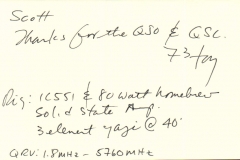 Scott
Thanks for the QSO & QSL.
73
Rig: IC551 & 80 watt homebrew
Solid State Amp.
3 element yagi @ 40'
QRV: 1.8MHz - 5760MHz